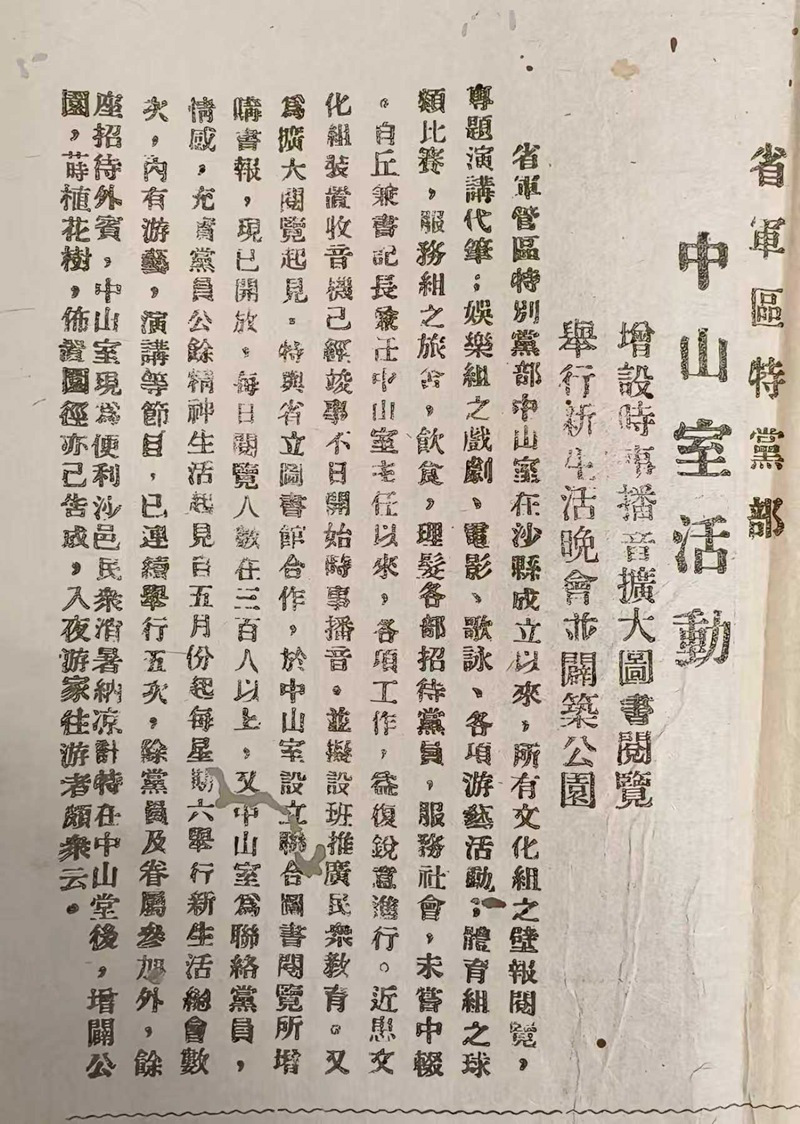 省軍區特黨部
中山室活動
增設時事播音擴大圖書閱覽
舉行新生活晚會並闢築公園
省軍管區特別黨部中山室在沙縣成立以來，所有文化組之壁報閱覽，
專題演講代筆；娛樂組之戲劇、電影、歌詠、各項游藝活動；體育組之球
類比賽，服務組之旅舍，飲食，理髮各部招待黨員，服務社會，未嘗中輟
。自丘兼書記長兼任中山室主任以來，各項工作，益復銳意進行。近患文
化組裝置收音機已經竣事不日開始時事播音。並擬設班推廣民衆教育。又
為擴大閱覽起見。特與省立圖書館合作，於中山室設立聯合圖書閱覽所增
購書報，現已開放，每日閱覽人數在三百人以上，又中山室為聯絡黨員，
情感，充實黨員公餘精神生活起見自五月份起每星期六舉行新生活總會數
次，內有游藝，演講等節目，已連續舉行五次，除黨員及眷屬參加外，餘
座招待外賓，中山室現為便利沙邑民衆消暑納凉計特在中山堂後，增闢公
園，蒔植花樹，佈置園徑亦已告成，入夜游家往游者頗衆云。